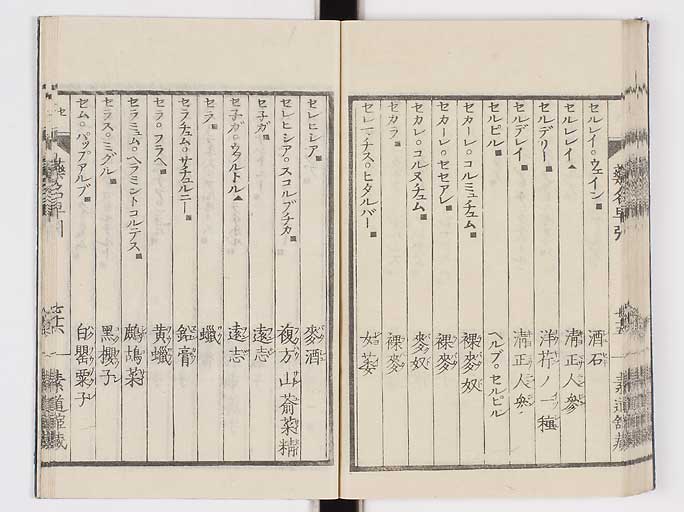 セルレイ。ウェイン 酒石
セルレレイ 清正人參
セルデリー 洋芹ノ一種
セルデレイ 清正人參
セルピル ヘルブ。セルピル
セカーレ。コルミュチュム 裸麥奴
セカーレ。セセアレ 裸麥
セカレ。コルヌチュム 麥奴
セカラ 裸麥
藥名早引
セレヒシア 麥酒
セレヒシア。スコルブチカ 複方山葵菜精
セ子ガ 遠志
セ子ガ。ウヲルトル 遠志
セラ 蠟
セラチュム。サチュルニー 鉛膏
セラ。フラヘ 黄蠟
セラミュム。ヘラミントコルテス 鷓鴣菜
セラス。ミグル 黑櫻子
セム。パップアルブ 白罌粟子
セ
七十六
素道館藏